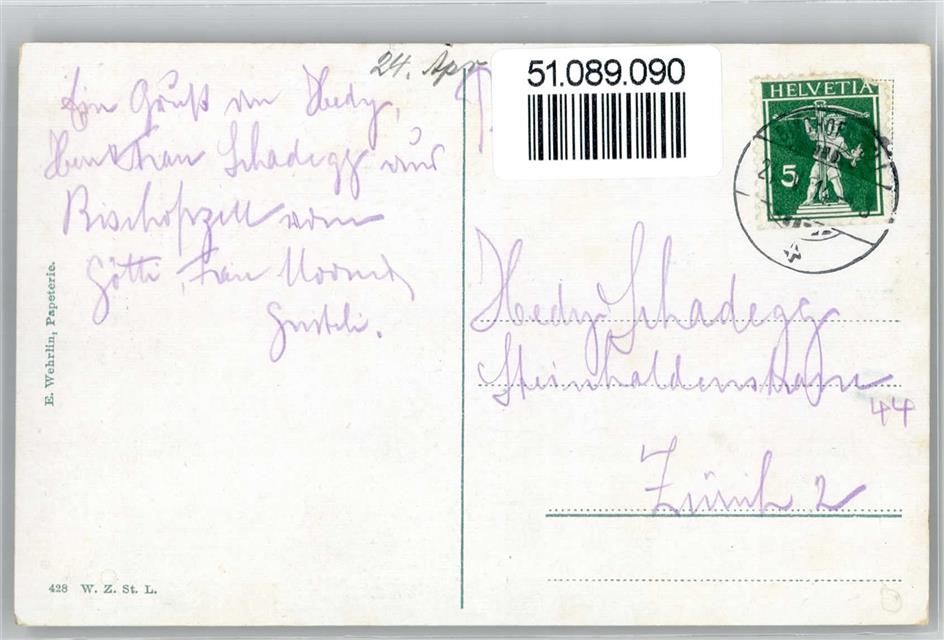 24. Apr
Ein Gruß an Hedy,
Herr & Frau Schadegg aus
Bischofszell vom
Götti, Frau
E. Wehrlin, Papeterie.
428 W. Z. St. L.
51.089.090
HELVETIA
5
Hedy Schadegg
Steinhaldenstrasse
44
Zürich 2